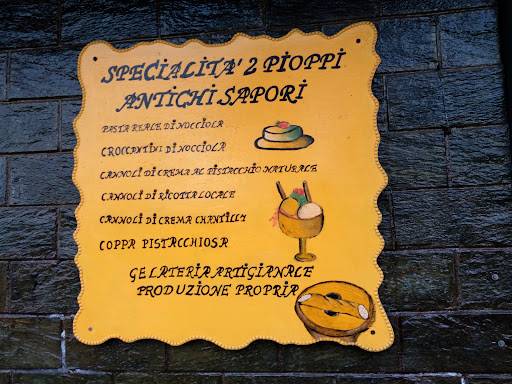 SPECIALITA' 2 PIOPPI
ANTICHI SAPORI
PASTA REALE DI NOCCIOLA
CROCCANTINI DI NOCCIOLA
CANNOLI DI CREMA AL PISTACCHIO NATURALE
CANNOLI DI RICOTTA LOCALE
CANNOLI DI CREMA CHANTILLY
COPPA PISTACCHIOSA
GELATERIA ARTIGIANALE
PRODUZIONE PROPRIA